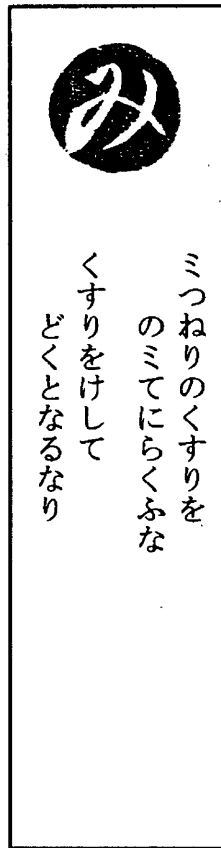 み
ミつねりのくすりを
のミてにらくふな
くすりをけして
どくとなるなり